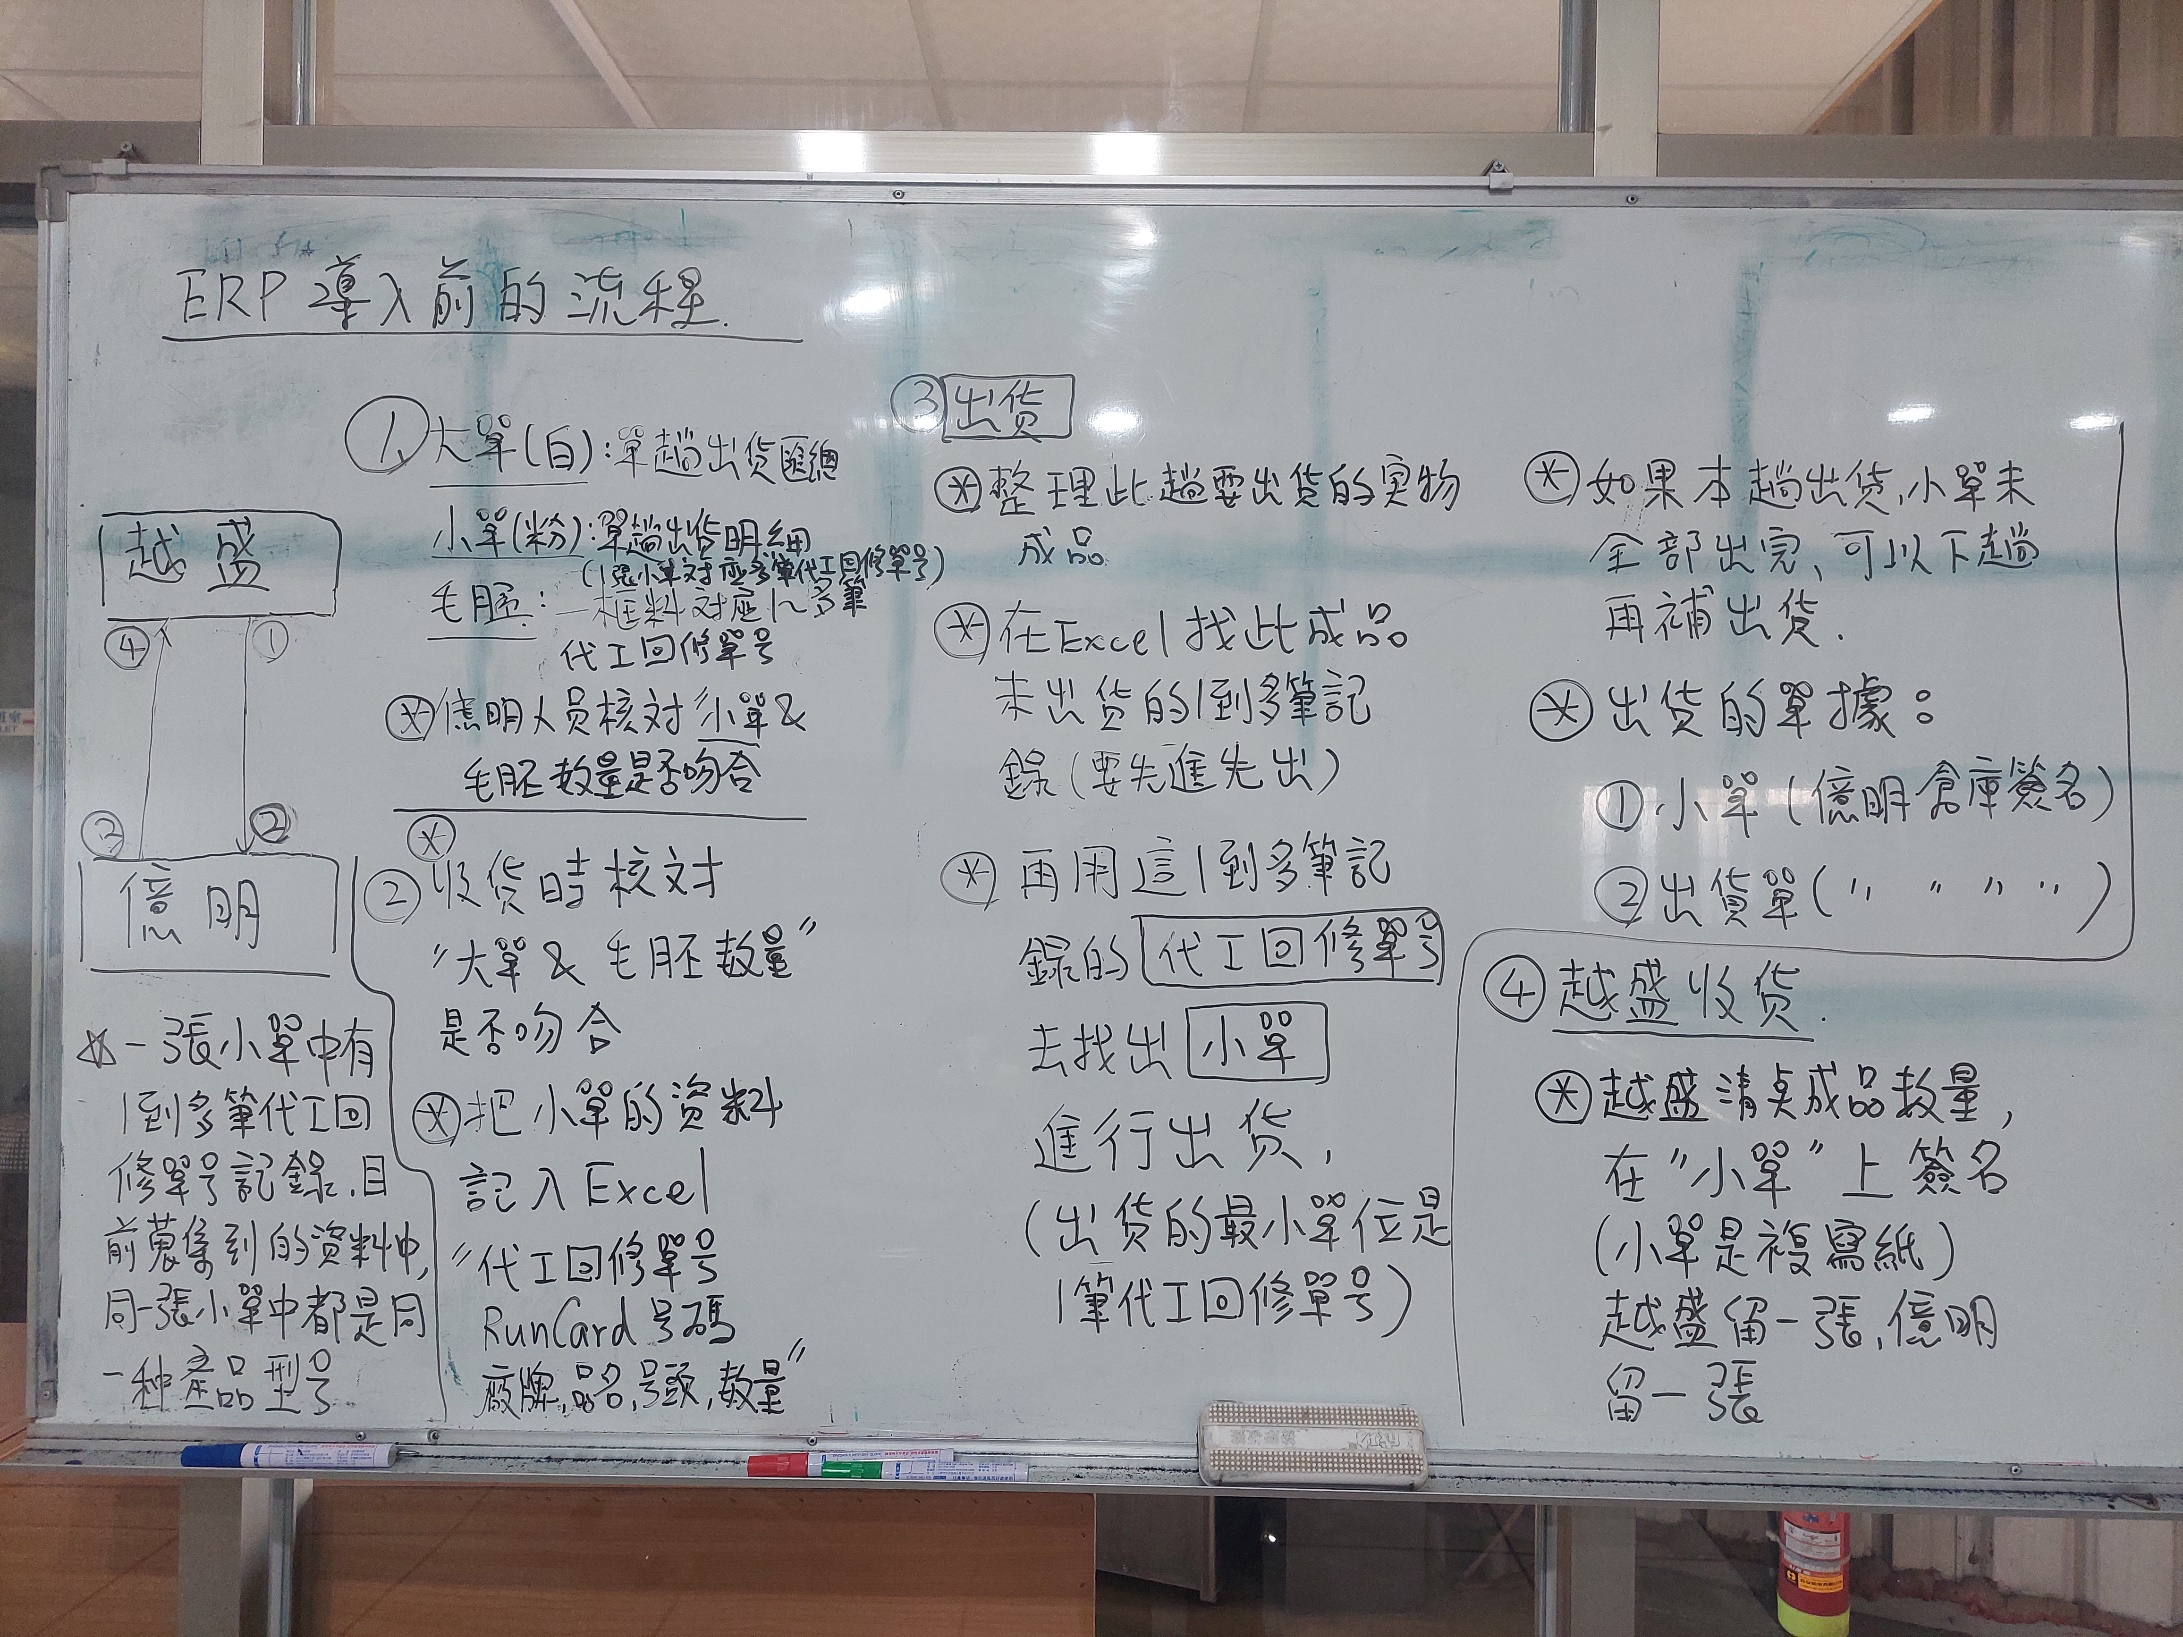 ERP導入前的流程.
越盛
④ ①
③ ②
億明
☆一張小單中有
1到多筆代工回
修單号記錄,目
前蒐集到的資料中,
同一張小單中都是同
一種產品型号
①、大單(白):單趟出货匯總
小單(粉):單趟出货明細
(1張小單対應多筆代工回修單号)
毛胚:一框料対應1~多筆
代工回修單号
＊億明人員核対小單&
毛胚数量是否吻合
＊
②收货時核対
"大單&毛胚数量"
是否吻合
＊把小單的資料
記入Excel
"代工回修單号
RunCard号碼
廠牌,品名,号頭,数量"
③出货
＊整理此趟要出货的实物
成品
＊在Excel找此成品
未出货的1到多筆記
錄(要先進先出)
＊再用這1到多筆記
錄的代工回修單号
去找出小單
進行出货,
(出货的最小單位是
1筆代工回修單号)
＊如果本趟出货,小單未
全部出完、可以下趟
再補出货.
＊出货的單據:
①小單(億明倉庫簽名)
②出貨單(〃 〃 〃 〃)
④越盛收货.
＊越盛清桌成品数量,
在"小單"上簽名
(小單是複寫紙)
越盛留一張,億明
留一張